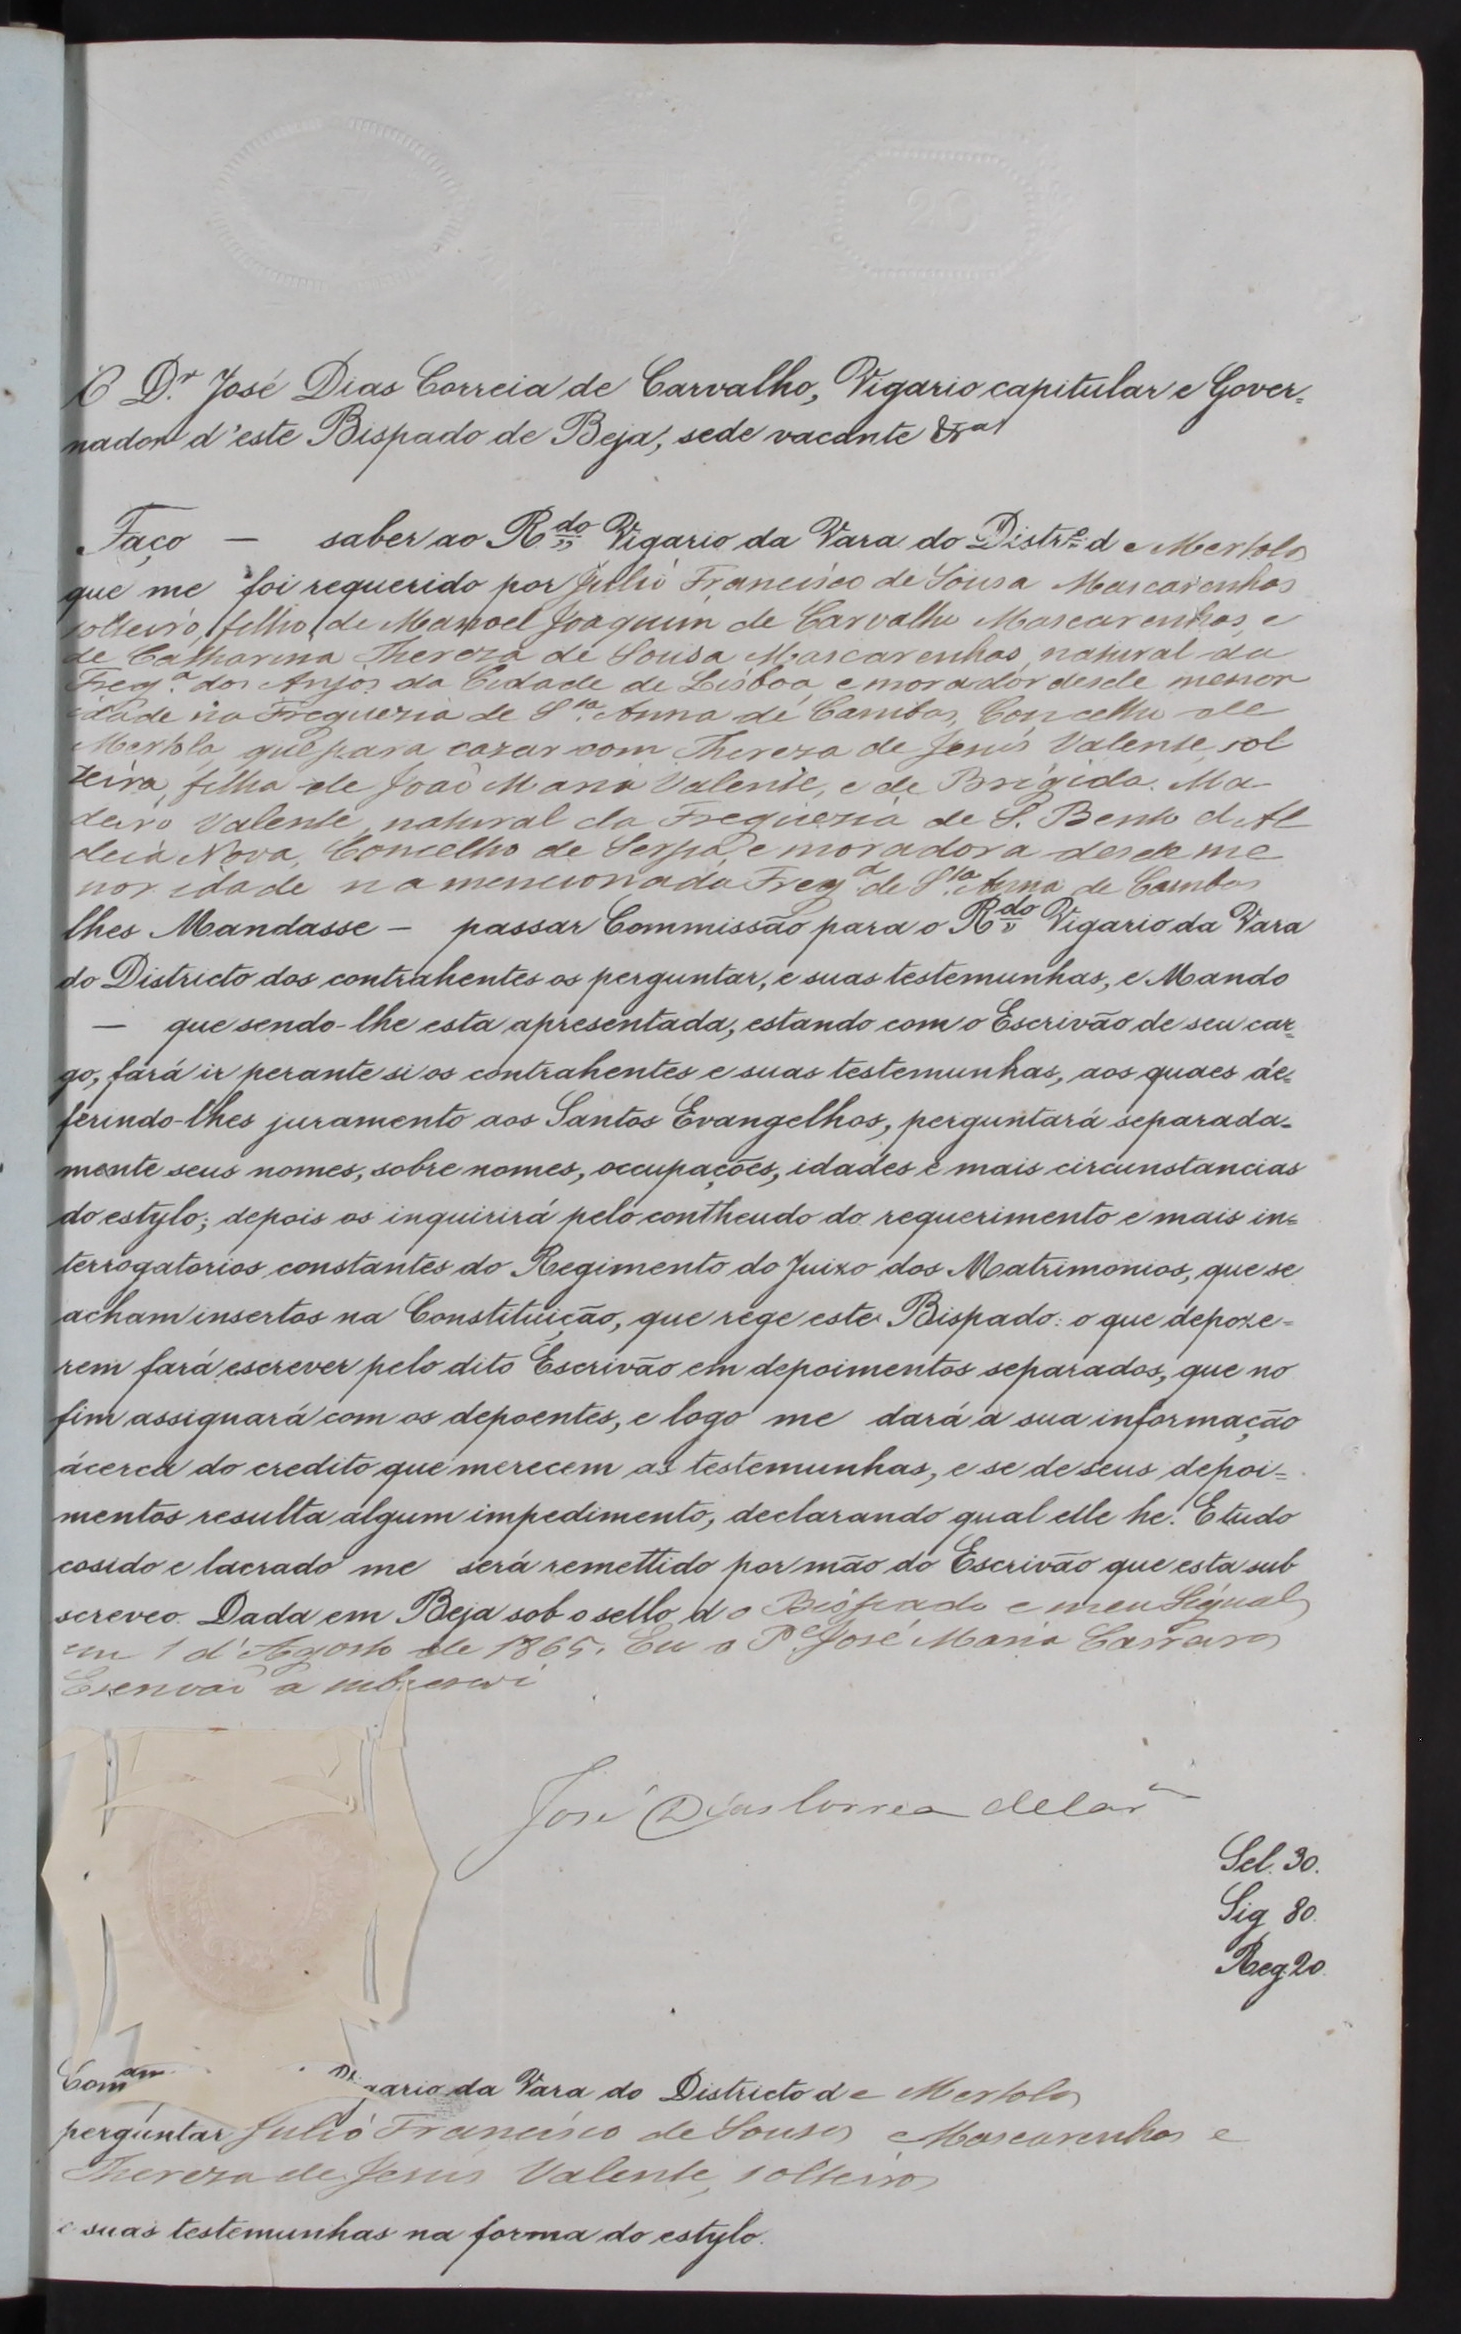 20
O Dr. José Dias Correia de Carvalho, Vigario capitular e Gover=
nador d'este Bispado de Beja, sede vacante &ra
Faço — saber ao Rdo Vigario da Vara do Distro de Mertola
que me foi requerido por Julio Francisco de Sousa Mascarenhas
solteiro, filho de Manoel Joaquim de Carvalho Mascarenhas, e
de Catharina Thereza de Sousa Mascarenhas, natural da
Fregª. dos Anjos da Cidade de Lisboa, e morador desde menor
idade na Freguezia de Sta. Anna de Cambas, Concelho de
Mertola, que para cazar com Thereza de Jesus Valente, sol
teira, filha de João Maria Valente, e de Brigida Ma-
deiro Valente, natural da Freguezia de S. Bento d'Al
deia Nova, Concelho de Serpa, e moradora desde me
nor idade na mencionada Fregª de Sta. Anna de Cambas
lhes Mandasse — passar Commissão para o Rdo Vigario da Vara
do Districto dos contrahentes os perguntar, e suas testemunhas, e Mando
— que sendo-lhe esta apresentada, estando com o Escrivão de seu car=
go, fará ir perante si os contrahentes e suas testemunhas, aos quaes de=
ferindo-lhes juramento aos Santos Evangelhos, perguntará separada=
mente seus nomes, sobre nomes, occupações, idades e mais circunstancias
do estylo; depois os inquirirá pelo contheudo do requerimento e mais in=
terrogatorios constantes do Regimento do Juizo dos Matrimonios, que se
acham insertos na Constituição, que rege este Bispado: o que depoze=
rem fará escrever pelo dito Escrivão em depoimentos separados, que no
fim assignará com os depoentes, e logo me dará a sua informação
ácerca do credito que merecem as testemunhas, e se de seus depoi=
mentos resulta algum impedimento, declarando qual elle he. E tudo
cosido e lacrado me será remettido por mão do Escrivão que esta sub
screveo. Dada em Beja sob o sello do Bispado e meu Signal
em 1 d'Agosto de 1865. Eu o Pe José Maria Carreiro
Escrivão a subscrevi
José Dias Correa de Carº
Sel. 30.
Sig 80.
Reg. 20.
Comam gario da Vara do Districto de Mertola
perguntar Julio Francisco de Sousa Mascarenhas e
Thereza de Jesus Valente, solteiros
e suas testemunhas na forma do estylo.